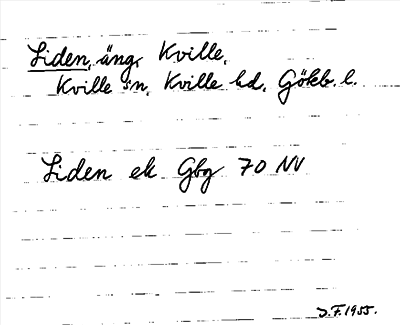 Liden, äng, Kville,
Kville sn, Kville hd, Gökb. l.
Liden ek Gbg 70 NV
J.F. 1955.